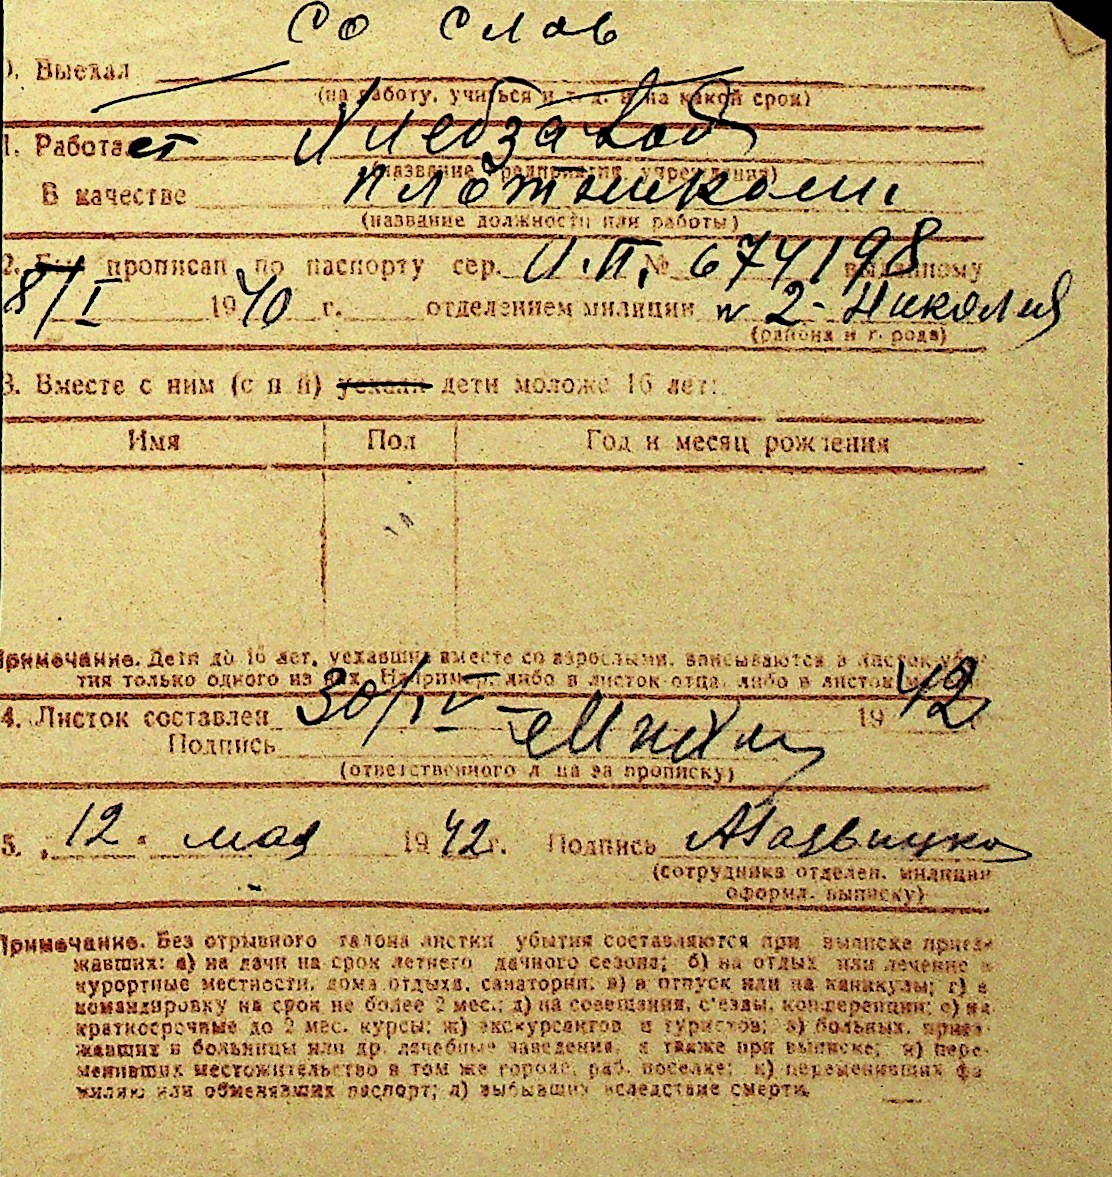 со слов
0. Выехал
(на работу, учиться и т. д. и на какой срок)
1. Работает Хлебзавод
(название предприятия, учреждения)
В качестве плотником
(название должности или работы)
2. Был прописан по паспорту сер. И.П. № 674198 выданному
8/I 1940 г. отделением милиции 2- Николая
(района и города)
3. Вместе с ним (с н й) уехали дети моложе 16 лет:
Имя Пол Год и месяц рождения
Примечание. Дети до 16 лет, уехавшие вместе со взрослыми, вписываются в листок убы-
тия только одного из них. Например: либо в листок отца, либо в листок
4. Листок составлен 30/IV 1942
Подпись
(ответственного лица за прописку)
5. „12“ мая 1942 г. Подпись
(сотрудника отделен. милиции
оформл. выписку)
Примечание. Без отрывного талона листки убытия составляются при выписке приез-
жавших: а) на дачи на срок летнего дачного сезона; б) на отдых или лечение в
курортные местности, дома отдыха, санатории; в) в отпуск или на каникулы; г) в
командировку на срок не более 2 мес.; д) на совещания, с'езды, конференции; е) на
краткосрочные до 2 мес. курсы; ж) экскурсантов и туристов; з) больных, приез-
жавших в больницы или др. лечебные заведения, а также при выписке; и) пере-
менивших местожительство в том же городе, раб. поселке; к) переменивших фа-
милию или обменявших паспорт; л) выбывших вследствие смерти.